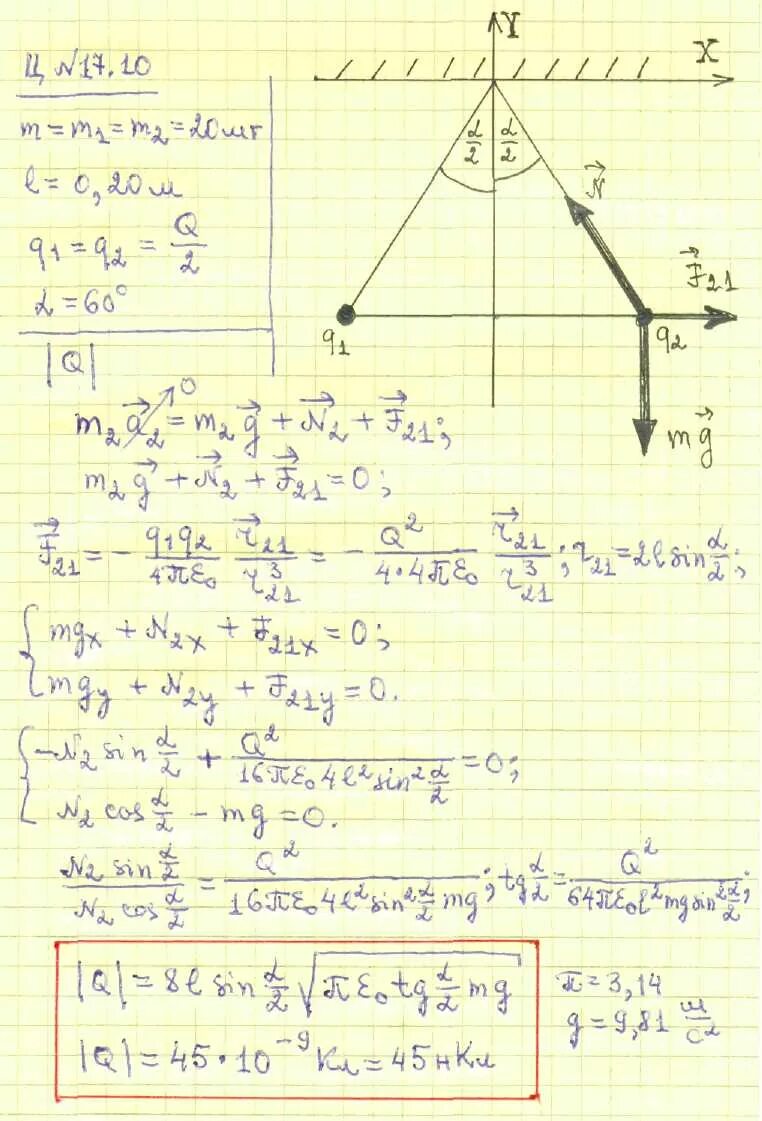 Ц №17.10
m = m₁ = m₂ = 20 мг
l = 0,20 м
q₁ = q₂ = Q/2
α = 60°
|Q|
Y
X
α/2 α/2
N⃗
F⃗₂₁
q₁
q₂
mg⃗
m₂a⃗₂ ↗0 = m₂g⃗ + N⃗₂ + F⃗₂₁;
m₂g⃗ + N⃗₂ + F⃗₂₁ = 0;
F⃗₂₁ = - q₁q₂/4πε₀ r⃗₂₁/r₂₁³ = - Q²/4·4πε₀ r⃗₂₁/r₂₁³; r₂₁ = 2l sin α/2;
{ mgx + N₂x + F₂₁x = 0;
mgy + N₂y + F₂₁y = 0.
{ -N₂ sin α/2 + Q²/16πε₀4l² sin² α/2 = 0;
N₂ cos α/2 - mg = 0.
N₂ sin α/2 / N₂ cos α/2 = Q²/16πε₀4l² sin² α/2 mg; tg α/2 = Q²/64πε₀l² mg sin² α/2;
|Q| = 8l sin α/2 √(πε₀ tg α/2 mg)
|Q| = 45·10⁻⁹ Кл = 45 нКл
π = 3,14
g = 9,81 м/с²